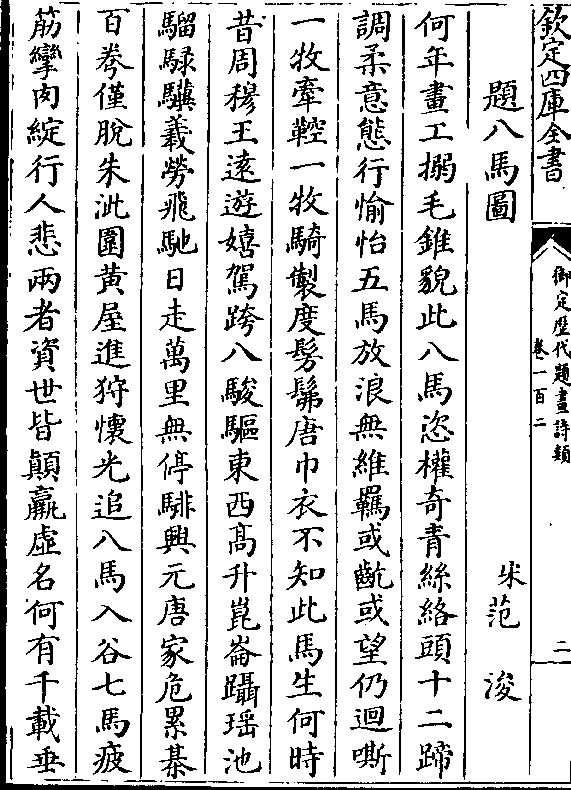 欽定四庫全書
御定歷代題畫詩類
卷一百二
二
題八馬圖
宋范浚
何年畫工搦毛錐貌此八馬恣權奇青絲絡頭十二蹄
調柔意態行愉怡五馬放浪無維羈或齕或望仍迴嘶
一牧牽鞚一牧騎製度髣髴唐巾衣不知此馬生何時
昔周穆王遠遊嬉駕跨八駿驅東西髙升崑崙躡瑶池
騮騄驥義勞飛馳日走萬里無停騑興元唐家危累棊
百夯僅脫朱泚圍黄屋進狩懷光追八馬入谷七馬疲
筋攣肉綻行人悲兩者資世皆顛羸虛名何有千載垂